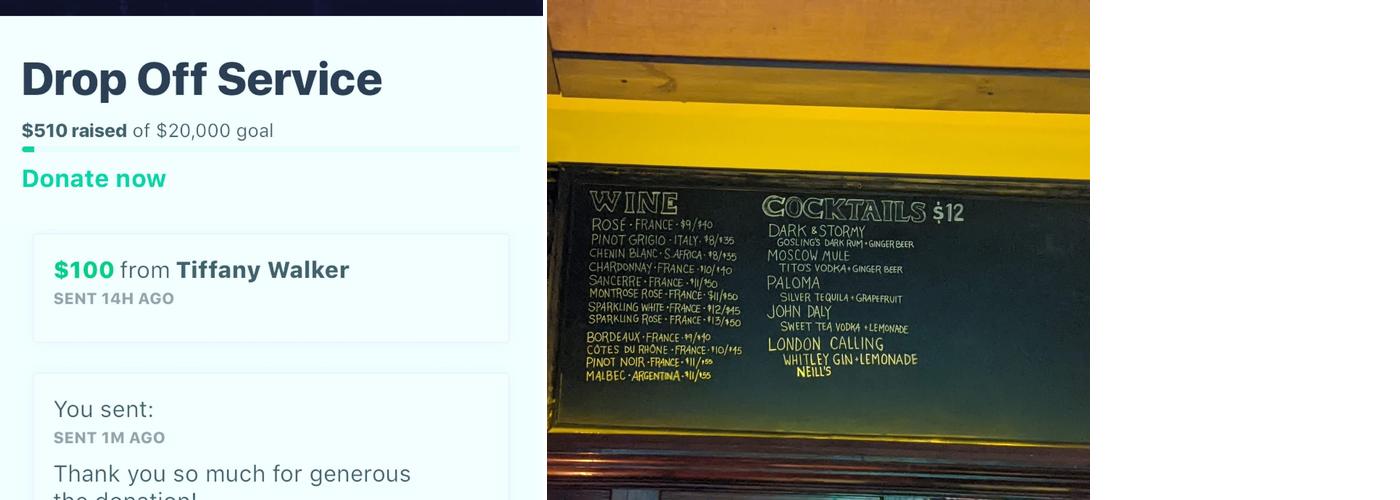 Drop Off Service
$510 raised of $20,000 goal
Donate now
$100 from Tiffany Walker
SENT 14H AGO
You sent:
SENT 1M AGO
Thank you so much for generous
the donation!
WINE
ROSÉ · FRANCE · $9/$40
PINOT GRIGIO · ITALY · $8/$35
CHENIN BLANC · S.AFRICA · $8/$35
CHARDONNAY · FRANCE · $10/$40
SANCERRE · FRANCE · $11/$50
MONTROSE ROSE · FRANCE · $11/$50
SPARKLING WHITE · FRANCE · $12/$45
SPARKLING ROSE · FRANCE · $13/$50
BORDEAUX · FRANCE · $9/$40
CÔTES DU RHÔNE · FRANCE · $10/$45
PINOT NOIR · FRANCE · $11/$55
MALBEC · ARGENTINA · $11/$55
COCKTAILS $12
DARK & STORMY
GOSLING'S DARK RUM · GINGER BEER
MOSCOW MULE
TITO'S VODKA + GINGER BEER
PALOMA
SILVER TEQUILA + GRAPEFRUIT
JOHN DALY
SWEET TEA VODKA + LEMONADE
LONDON CALLING
WHITLEY GIN + LEMONADE
NEILL'S